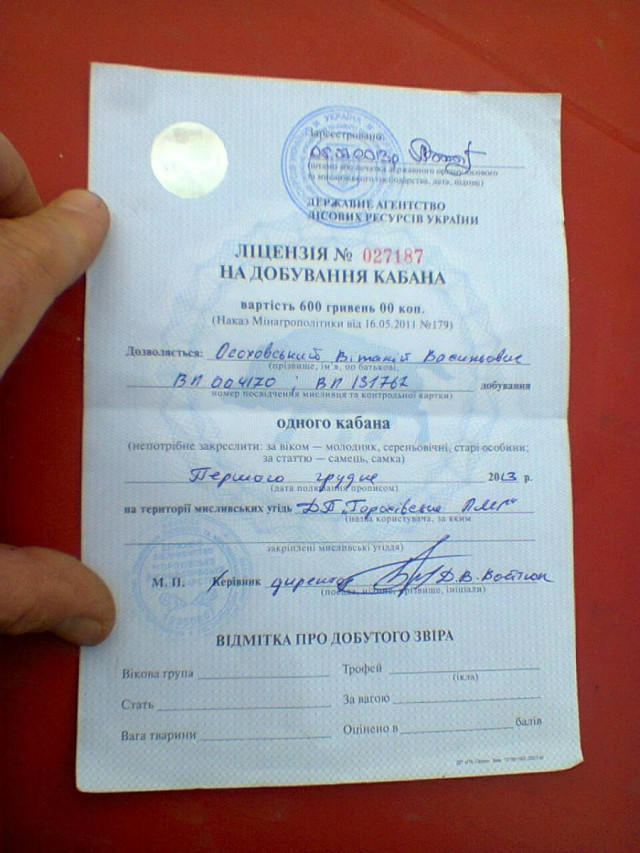 УКРАЇНА
Зареєстровано:
ДЕРЖАВНЕ АГЕНТСТВО
ЛІСОВИХ РЕСУРСІВ УКРАЇНИ
ЛІЦЕНЗІЯ № 027187
НА ДОБУВАННЯ КАБАНА
вартість 600 гривень 00 коп.
(Наказ Мінагрополітики від 16.05.2011 №179)
Дозволяється: Осоховський Віталій Васильович
(прізвище, ім'я, по батькові,
ВП 004170 ; ВП 131762 добування
номер посвідчення мисливця та контрольної картки)
одного кабана
(непотрібне закреслити: за віком — молодняк, сереньовічні, старі особини;
за статтю — самець, самка)
Першого грудня 2013 р.
(дата полювання прописом)
на території мисливських угідь ДП "Горохівське ЛМГ"
(назва користувача, за яким
закріплені мисливські угіддя)
М. П. Керівник директор Д.В. Войтюк
(посада, підпис, прізвище, ініціали)
ВІДМІТКА ПРО ДОБУТОГО ЗВІРА
Вікова група Трофей
(ікла)
Стать За вагою
Вага тварини Оцінено в балів